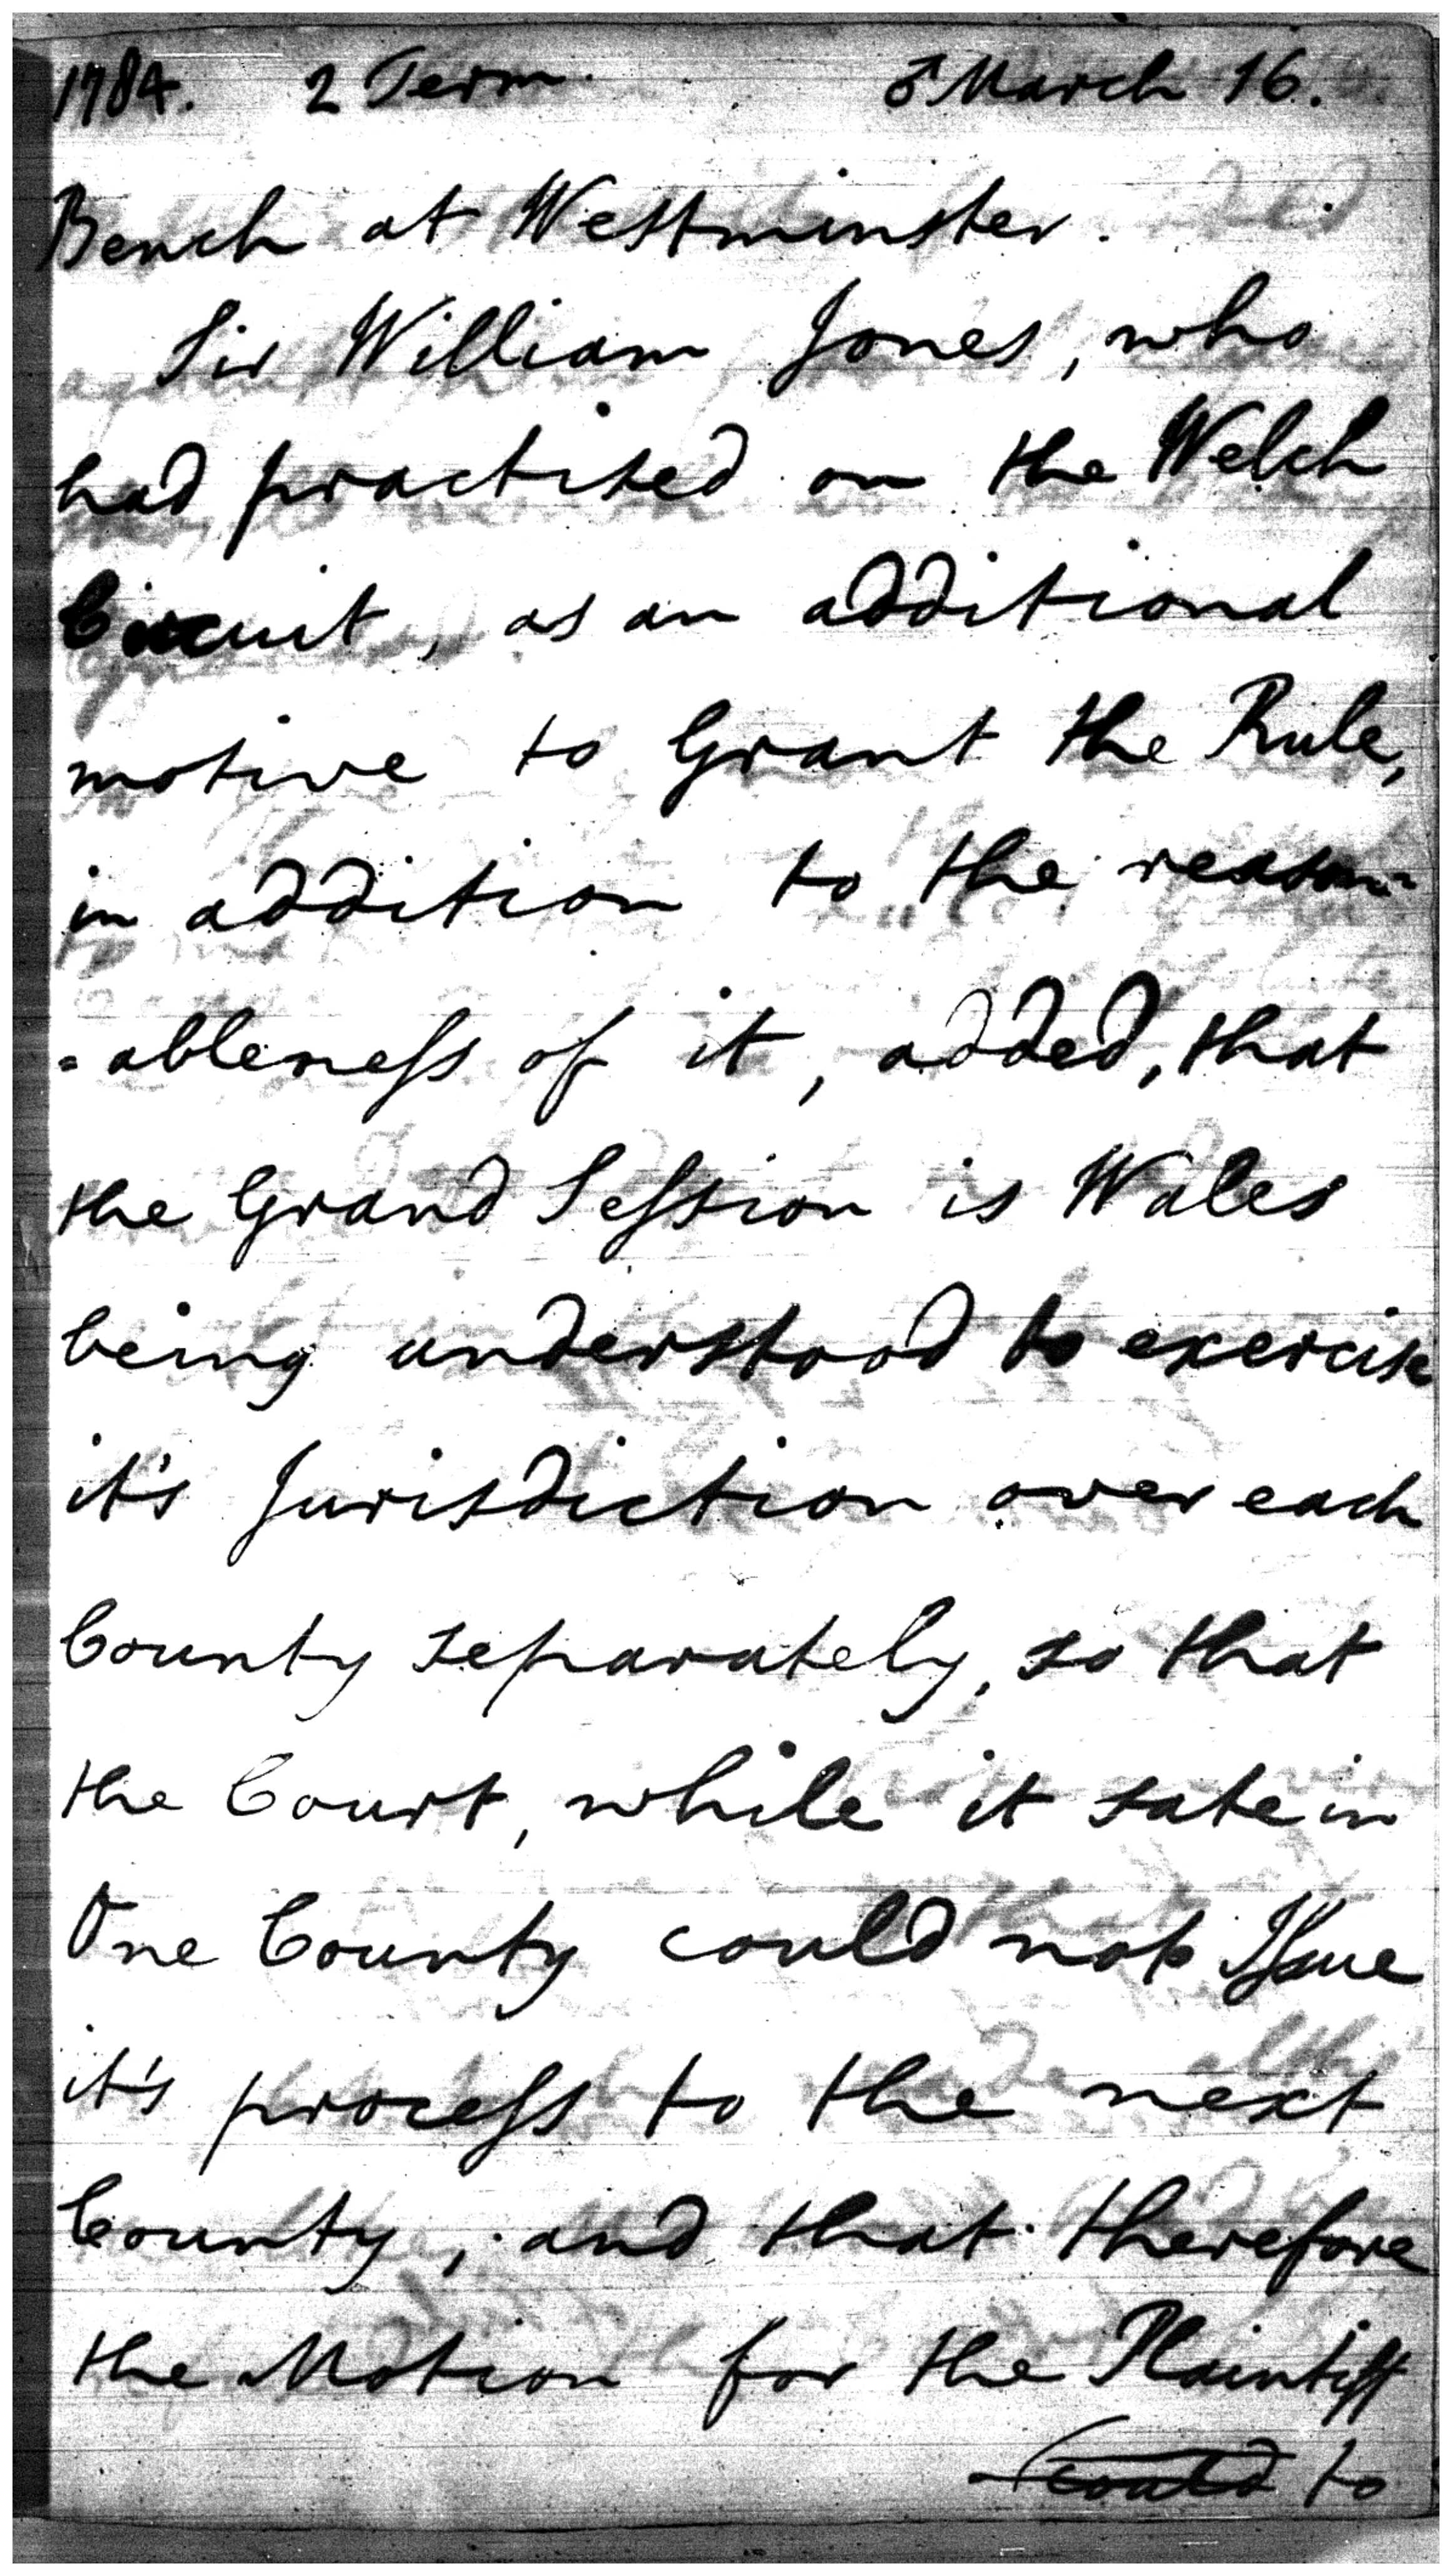 1784. 2 Term. ♂ March 16.
Bench at Westminster.
Sir William Jones, who
had practised on the Welch
Circuit, as an additional
motive to Grant the Rule,
in addition to the reason=
=ableness of it, added, that
the Grand Session is Wales
being understood to exercise
it's Jurisdiction over each
County separately, so that
the Court, while it sate in
One County could not Issue
it's process to the next
County, and that therefore
the Motion for the Plaintiff
could to